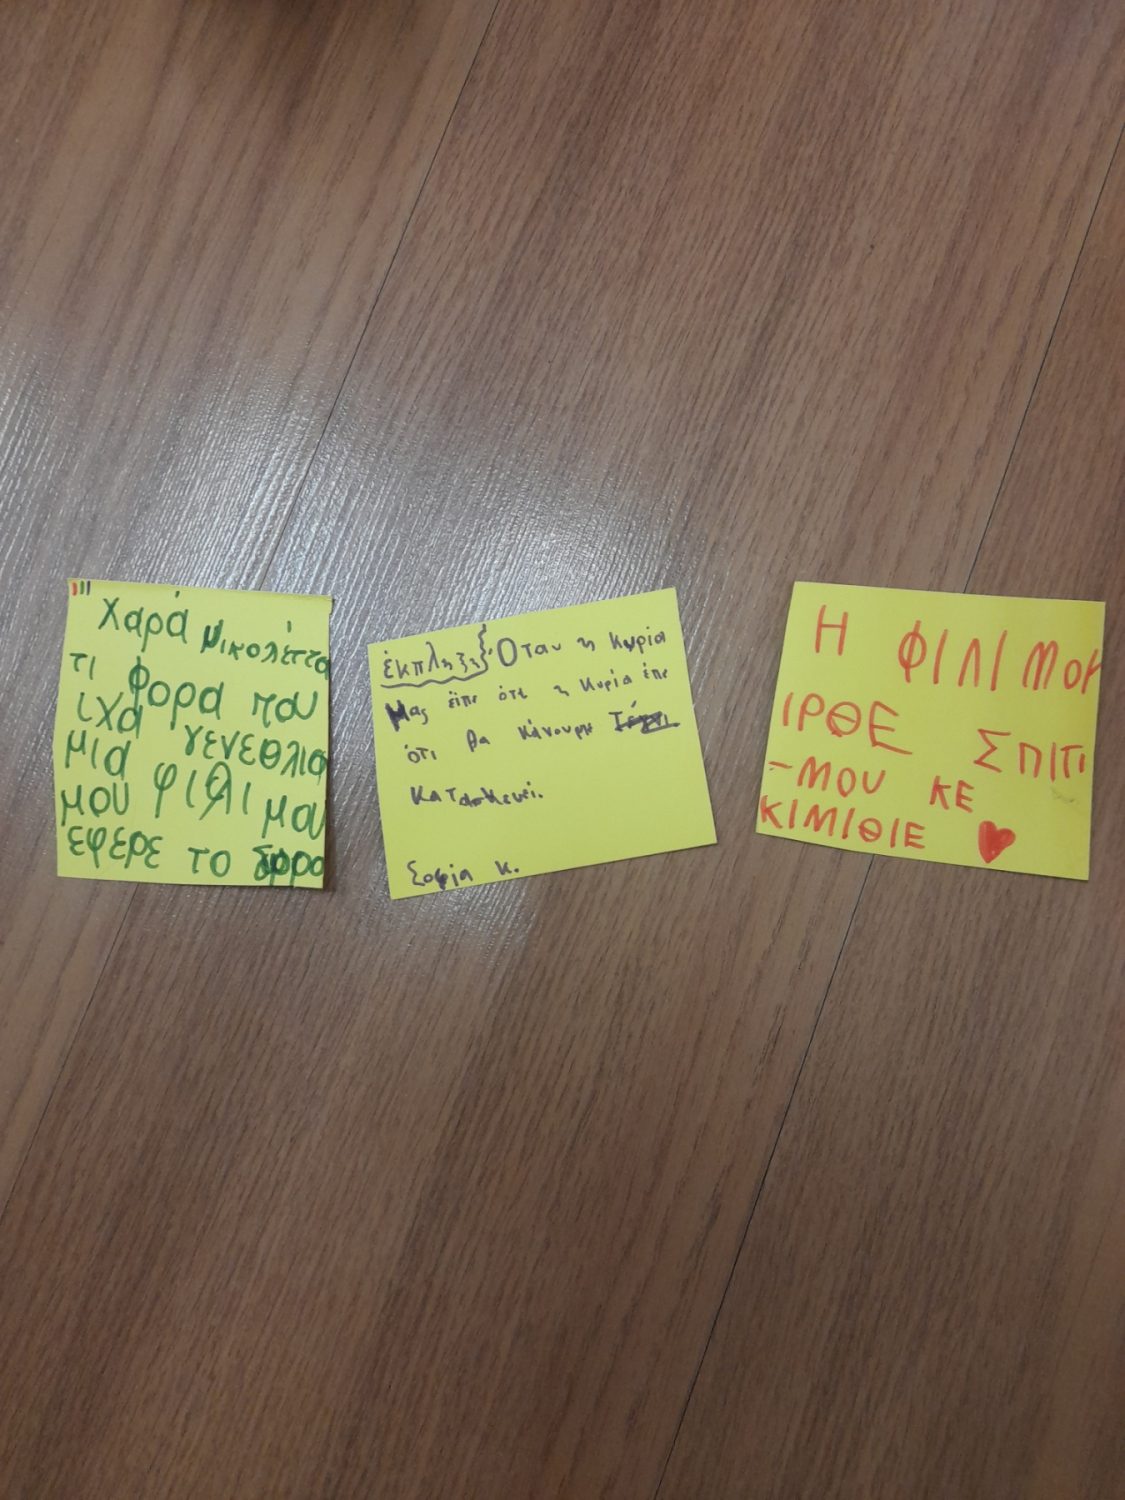 Χαρά Νικολέττα
τι φορα που
ιχα γενεθλια
μια φιλι
μου μου
εφερε το δορο
έκπληξη Οταν η κυρία
Μας είπε ότι η κυρία έπε
ότι θα κάνουμε
κατασκευεί.
Σοφία κ.
Η ΦΙΛΙ ΜΟΥ
ΙΡΘΕ ΣΠΙΤΙ
-ΜΟΥ ΚΕ
ΚΙΜΙΘΙΕ